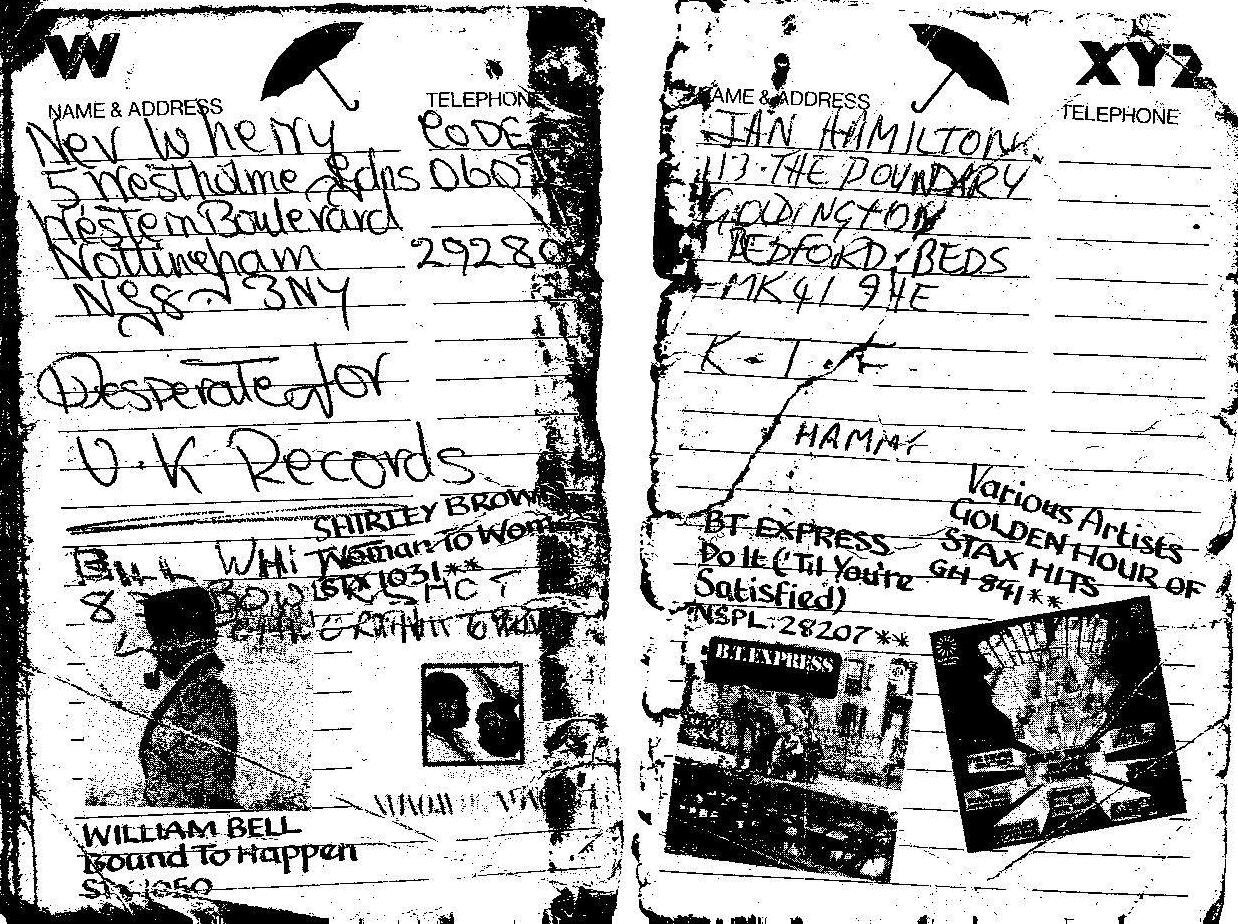 W
NAME & ADDRESS
TELEPHONE
Nev Wherry CODE
5 Westholme Gdns 060
Western Boulevard
Nottingham 29280
NG8 3NY
Desperate for
U.K Records
SHIRLEY BROWN
Woman to Woman
STX 1031**
BILL WHI
WILLIAM BELL
Bound To Happen
STX 1050
XYZ
NAME & ADDRESS
TELEPHONE
IAN HAMILTON
113 THE BOUNDARY
GOLDINGTON
BEDFORD, BEDS
MK41 9HE
K-T-F
HAMMY
Various Artists
GOLDEN HOUR OF
STAX HITS
GH 841**
BT EXPRESS
Do It ('Til You're
Satisfied)
NSPL. 28207**
B.T. EXPRESS